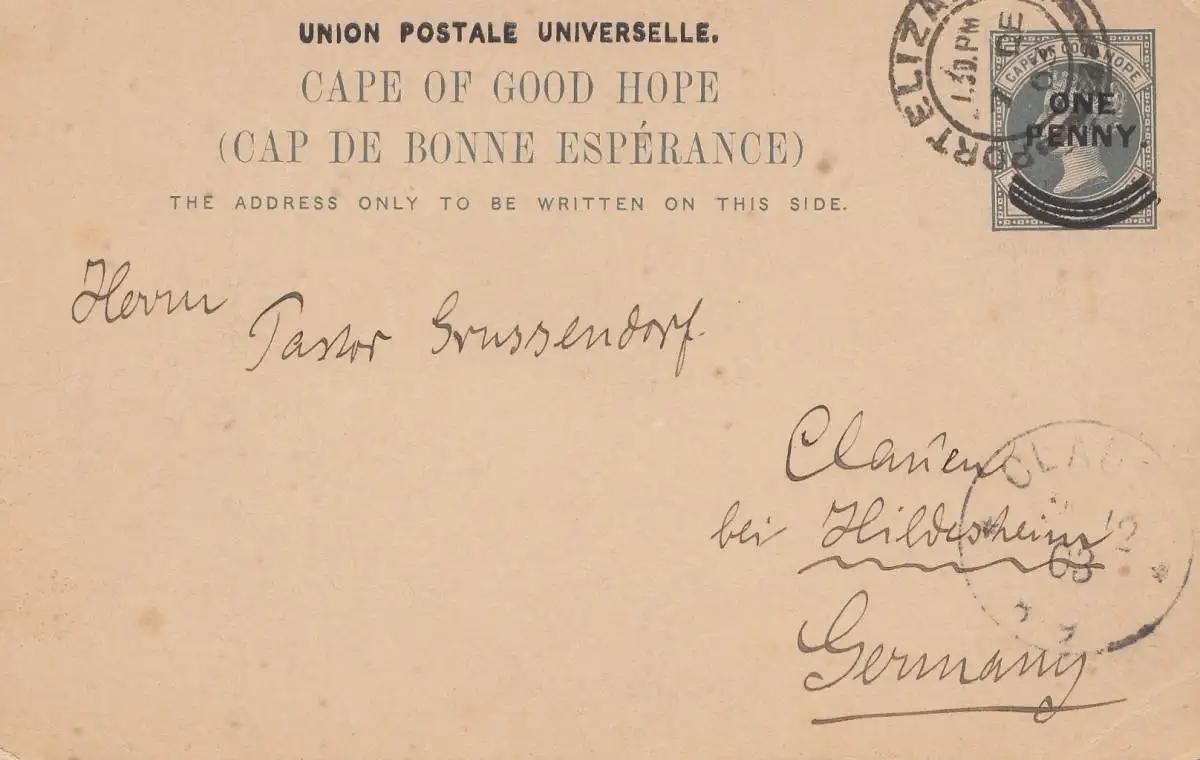 UNION POSTALE UNIVERSELLE.
CAPE OF GOOD HOPE
(CAP DE BONNE ESPÉRANCE)
THE ADDRESS ONLY TO BE WRITTEN ON THIS SIDE.
PORT ELIZA
1.30.PM
DE
CAPE OF GOOD HOPE
ONE
PENNY
Herrn
Pastor Grussendorf.
Clauen
bei Hildesheim
Germany
CLAU
03